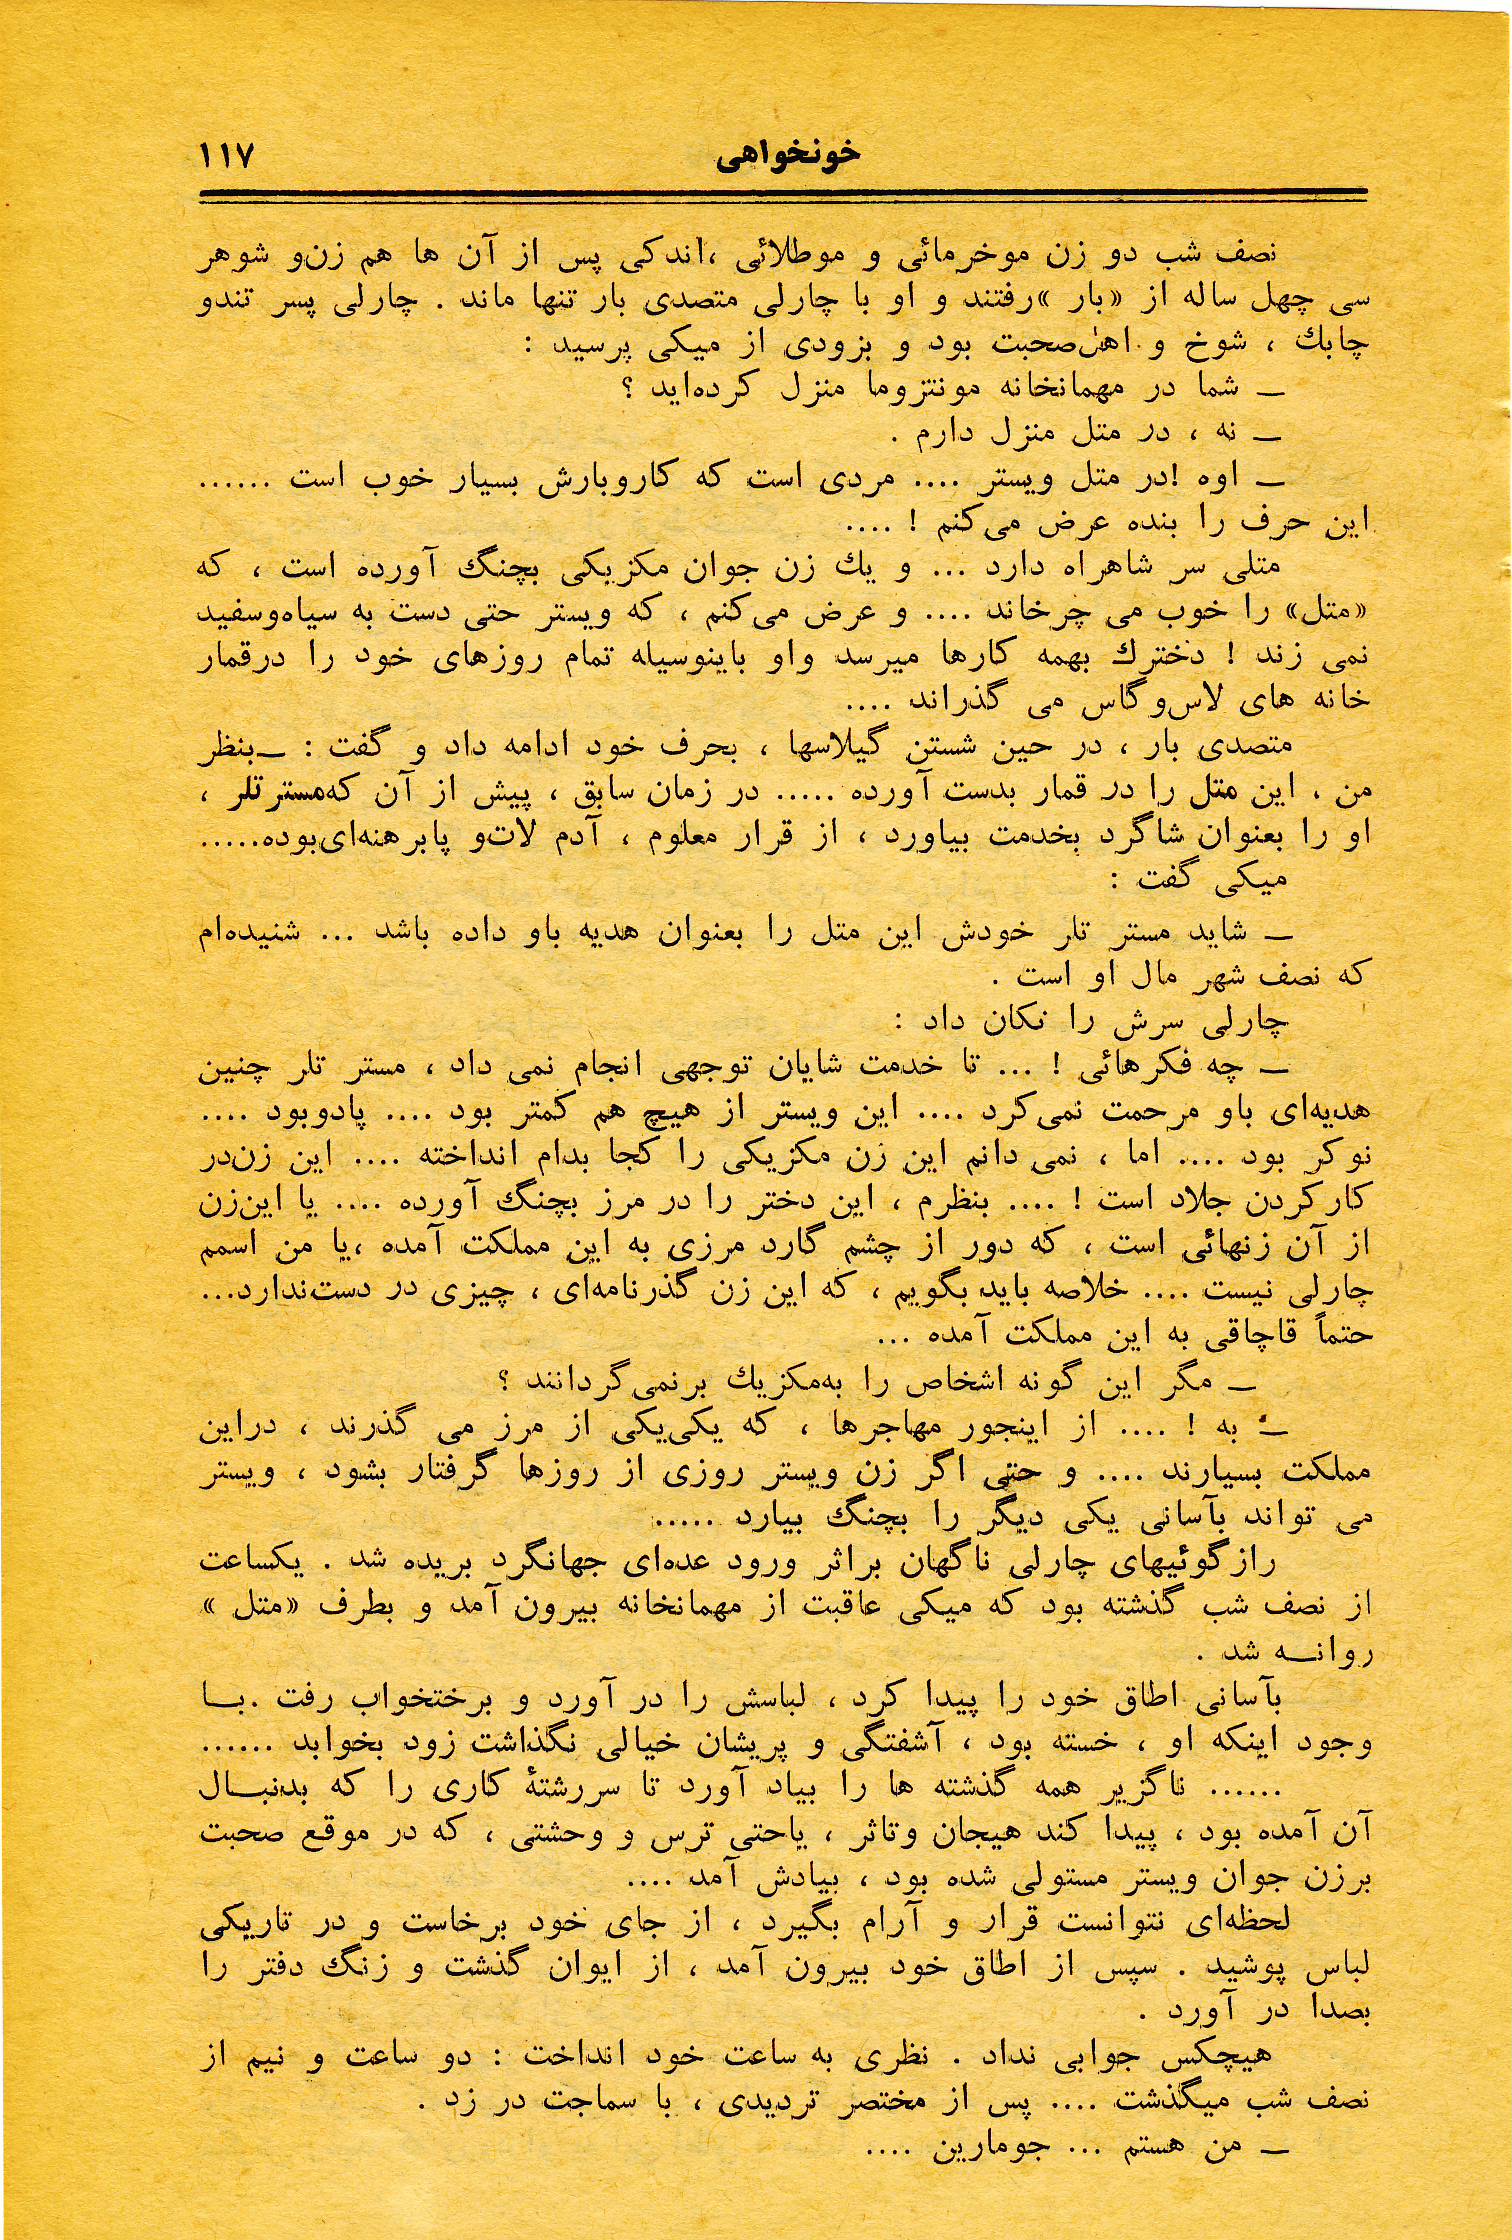 خونخواهی ۱۱۷
نصف شب دو زن موخرمائی و موطلائی ،اندکی پس از آن ها هم زن‌و شوهر
سی چهل ساله از «بار »رفتند و او با چارلی متصدی بار تنها ماند . چارلی پسر تندو
چابك ، شوخ و اهل‌صحبت بود و بزودی از میکی پرسید :
ـ شما در مهمانخانه مونتزوما منزل کرده‌اید ؟
ـ نه ، در متل منزل دارم .
ـ اوه !در متل ویستر .... مردی است که کاروبارش بسیار خوب است ......
این حرف را بنده عرض می‌کنم ! ....
متلی سر شاهراه دارد ... و یك زن جوان مکزیکی بچنگ آورده است ، که
«متل» را خوب می چرخاند .... و عرض می‌کنم ، که ویستر حتی دست به سیاه‌وسفید
نمی زند ! دخترك بهمه کارها میرسد واو باینوسیله تمام روزهای خود را درقمار
خانه های لاس‌وگاس می گذراند ....
متصدی بار ، در حین شستن گیلاسها ، بحرف خود ادامه داد و گفت : ـبنظر
من ، این متل را در قمار بدست آورده ..... در زمان سابق ، پیش از آن که‌مسترتلر ،
او را بعنوان شاگرد بخدمت بیاورد ، از قرار معلوم ، آدم لات‌و پابرهنه‌ای‌بوده.....
میکی گفت :
ـ شاید مستر تلر خودش این متل را بعنوان هدیه باو داده باشد ... شنیده‌ام
که نصف شهر مال او است .
چارلی سرش را تکان داد :
ـ چه فکرهائی ! ... تا خدمت شایان توجهی انجام نمی داد ، مستر تلر چنین
هدیه‌ای باو مرحمت نمی‌کرد .... این ویستر از هیچ هم کمتر بود .... پادوبود ....
نوکر بود .... اما ، نمی دانم این زن مکزیکی را کجا بدام انداخته .... این زن‌در
کارکردن جلاد است ! .... بنظرم ، این دختر را در مرز بچنگ آورده .... یا این‌زن
از آن زنهائی است ، که دور از چشم گارد مرزی به این مملکت آمده ،یا من اسمم
چارلی نیست .... خلاصه باید بگویم ، که این زن گذرنامه‌ای ، چیزی در دست‌ندارد...
حتماً قاچاقی به این مملکت آمده ...
ـ مگر این گونه اشخاص را به‌مکزیك برنمی‌گردانند ؟
ـ به ! .... از اینجور مهاجرها ، که یکی‌یکی از مرز می گذرند ، دراین
مملکت بسیارند .... و حتی اگر زن ویستر روزی از روزها گرفتار بشود ، ویستر
می تواند بآسانی یکی دیگر را بچنگ بیارد .....
رازگوئیهای چارلی ناگهان براثر ورود عده‌ای جهانگرد بریده شد . یکساعت
از نصف شب گذشته بود که میکی عاقبت از مهمانخانه بیرون آمد و بطرف «متل »
روانــه شد .
بآسانی اطاق خود را پیدا کرد ، لباسش را در آورد و برختخواب رفت .بــا
وجود اینکه او ، خسته بود ، آشفتگی و پریشان خیالی نگذاشت زود بخوابد ......
...... ناگزیر همه گذشته ها را بیاد آورد تا سررشتهٔ کاری را که بدنبــال
آن آمده بود ، پیدا کند هیجان وتاثر ، یاحتی ترس و وحشتی ، که در موقع صحبت
برزن جوان ویستر مستولی شده بود ، بیادش آمد ....
لحظه‌ای نتوانست قرار و آرام بگیرد ، از جای خود برخاست و در تاریکی
لباس پوشید . سپس از اطاق خود بیرون آمد ، از ایوان گذشت و زنگ دفتر را
بصدا در آورد .
هیچکس جوابی نداد . نظری به ساعت خود انداخت : دو ساعت و نیم از
نصف شب میگذشت .... پس از مختصر تردیدی ، با سماجت در زد .
ـ من هستم ... جومارین ....